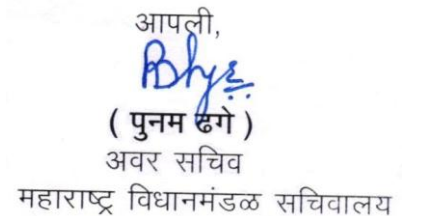 आपली,
( पुनम ढगे )
अवर सचिव
महाराष्ट्र विधानमंडळ सचिवालय